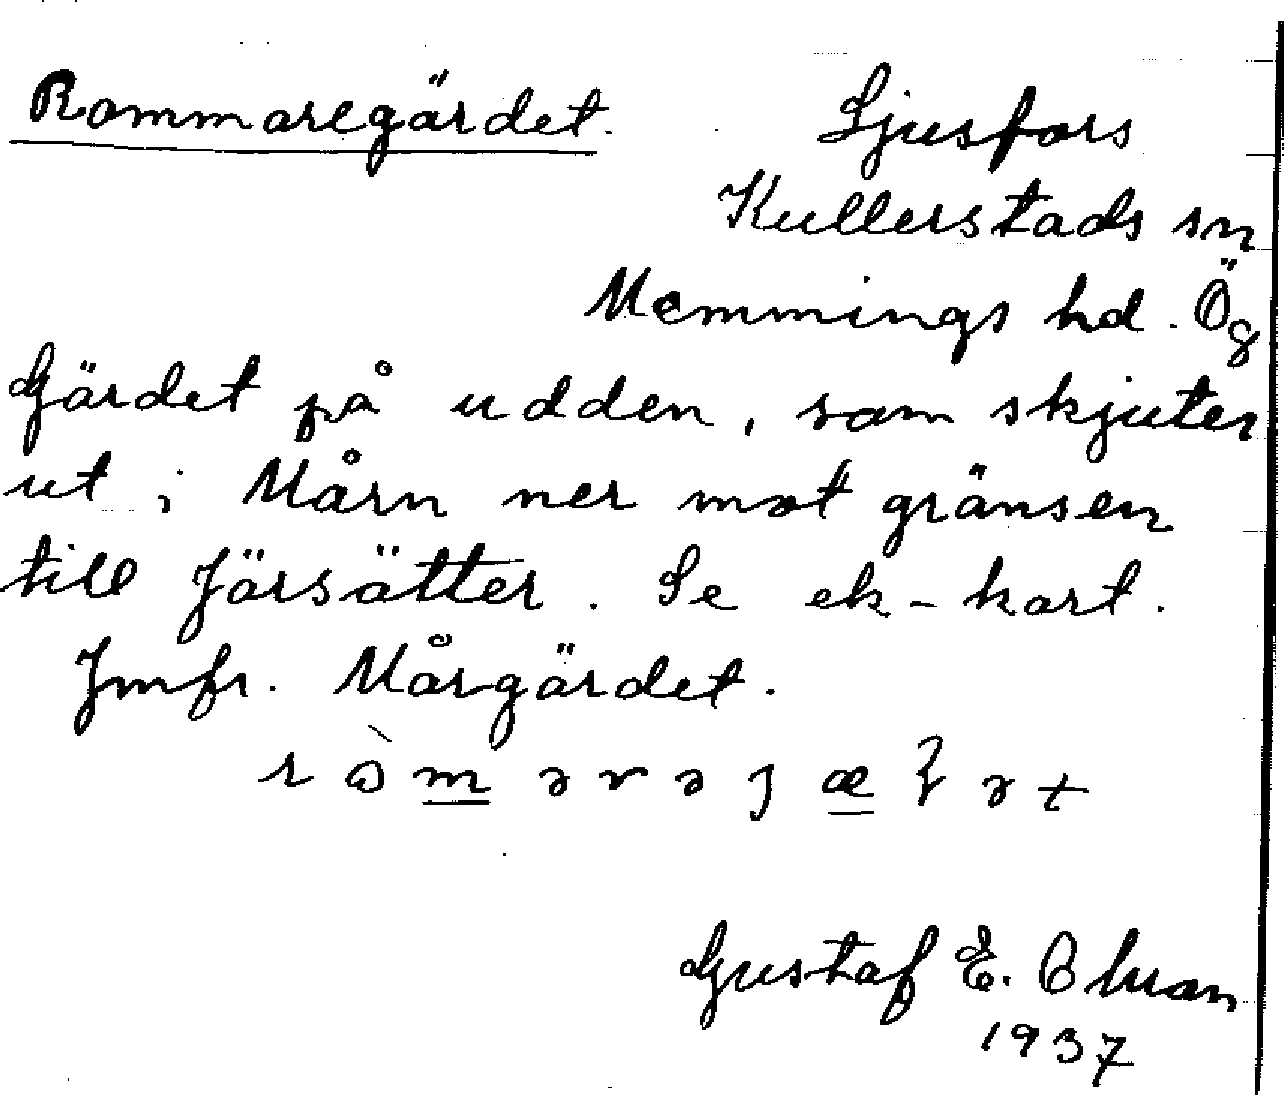 Rommaregärdet. Ljusfors
Kullerstads sn
Memmings hd. Ög
Gärdet på udden, som skjuter
ut i Mårn ner mot gränsen
till Järsätter. Se ek-kart.
Jmfr. Mårgärdet.
Gustaf E. Ohman
1937